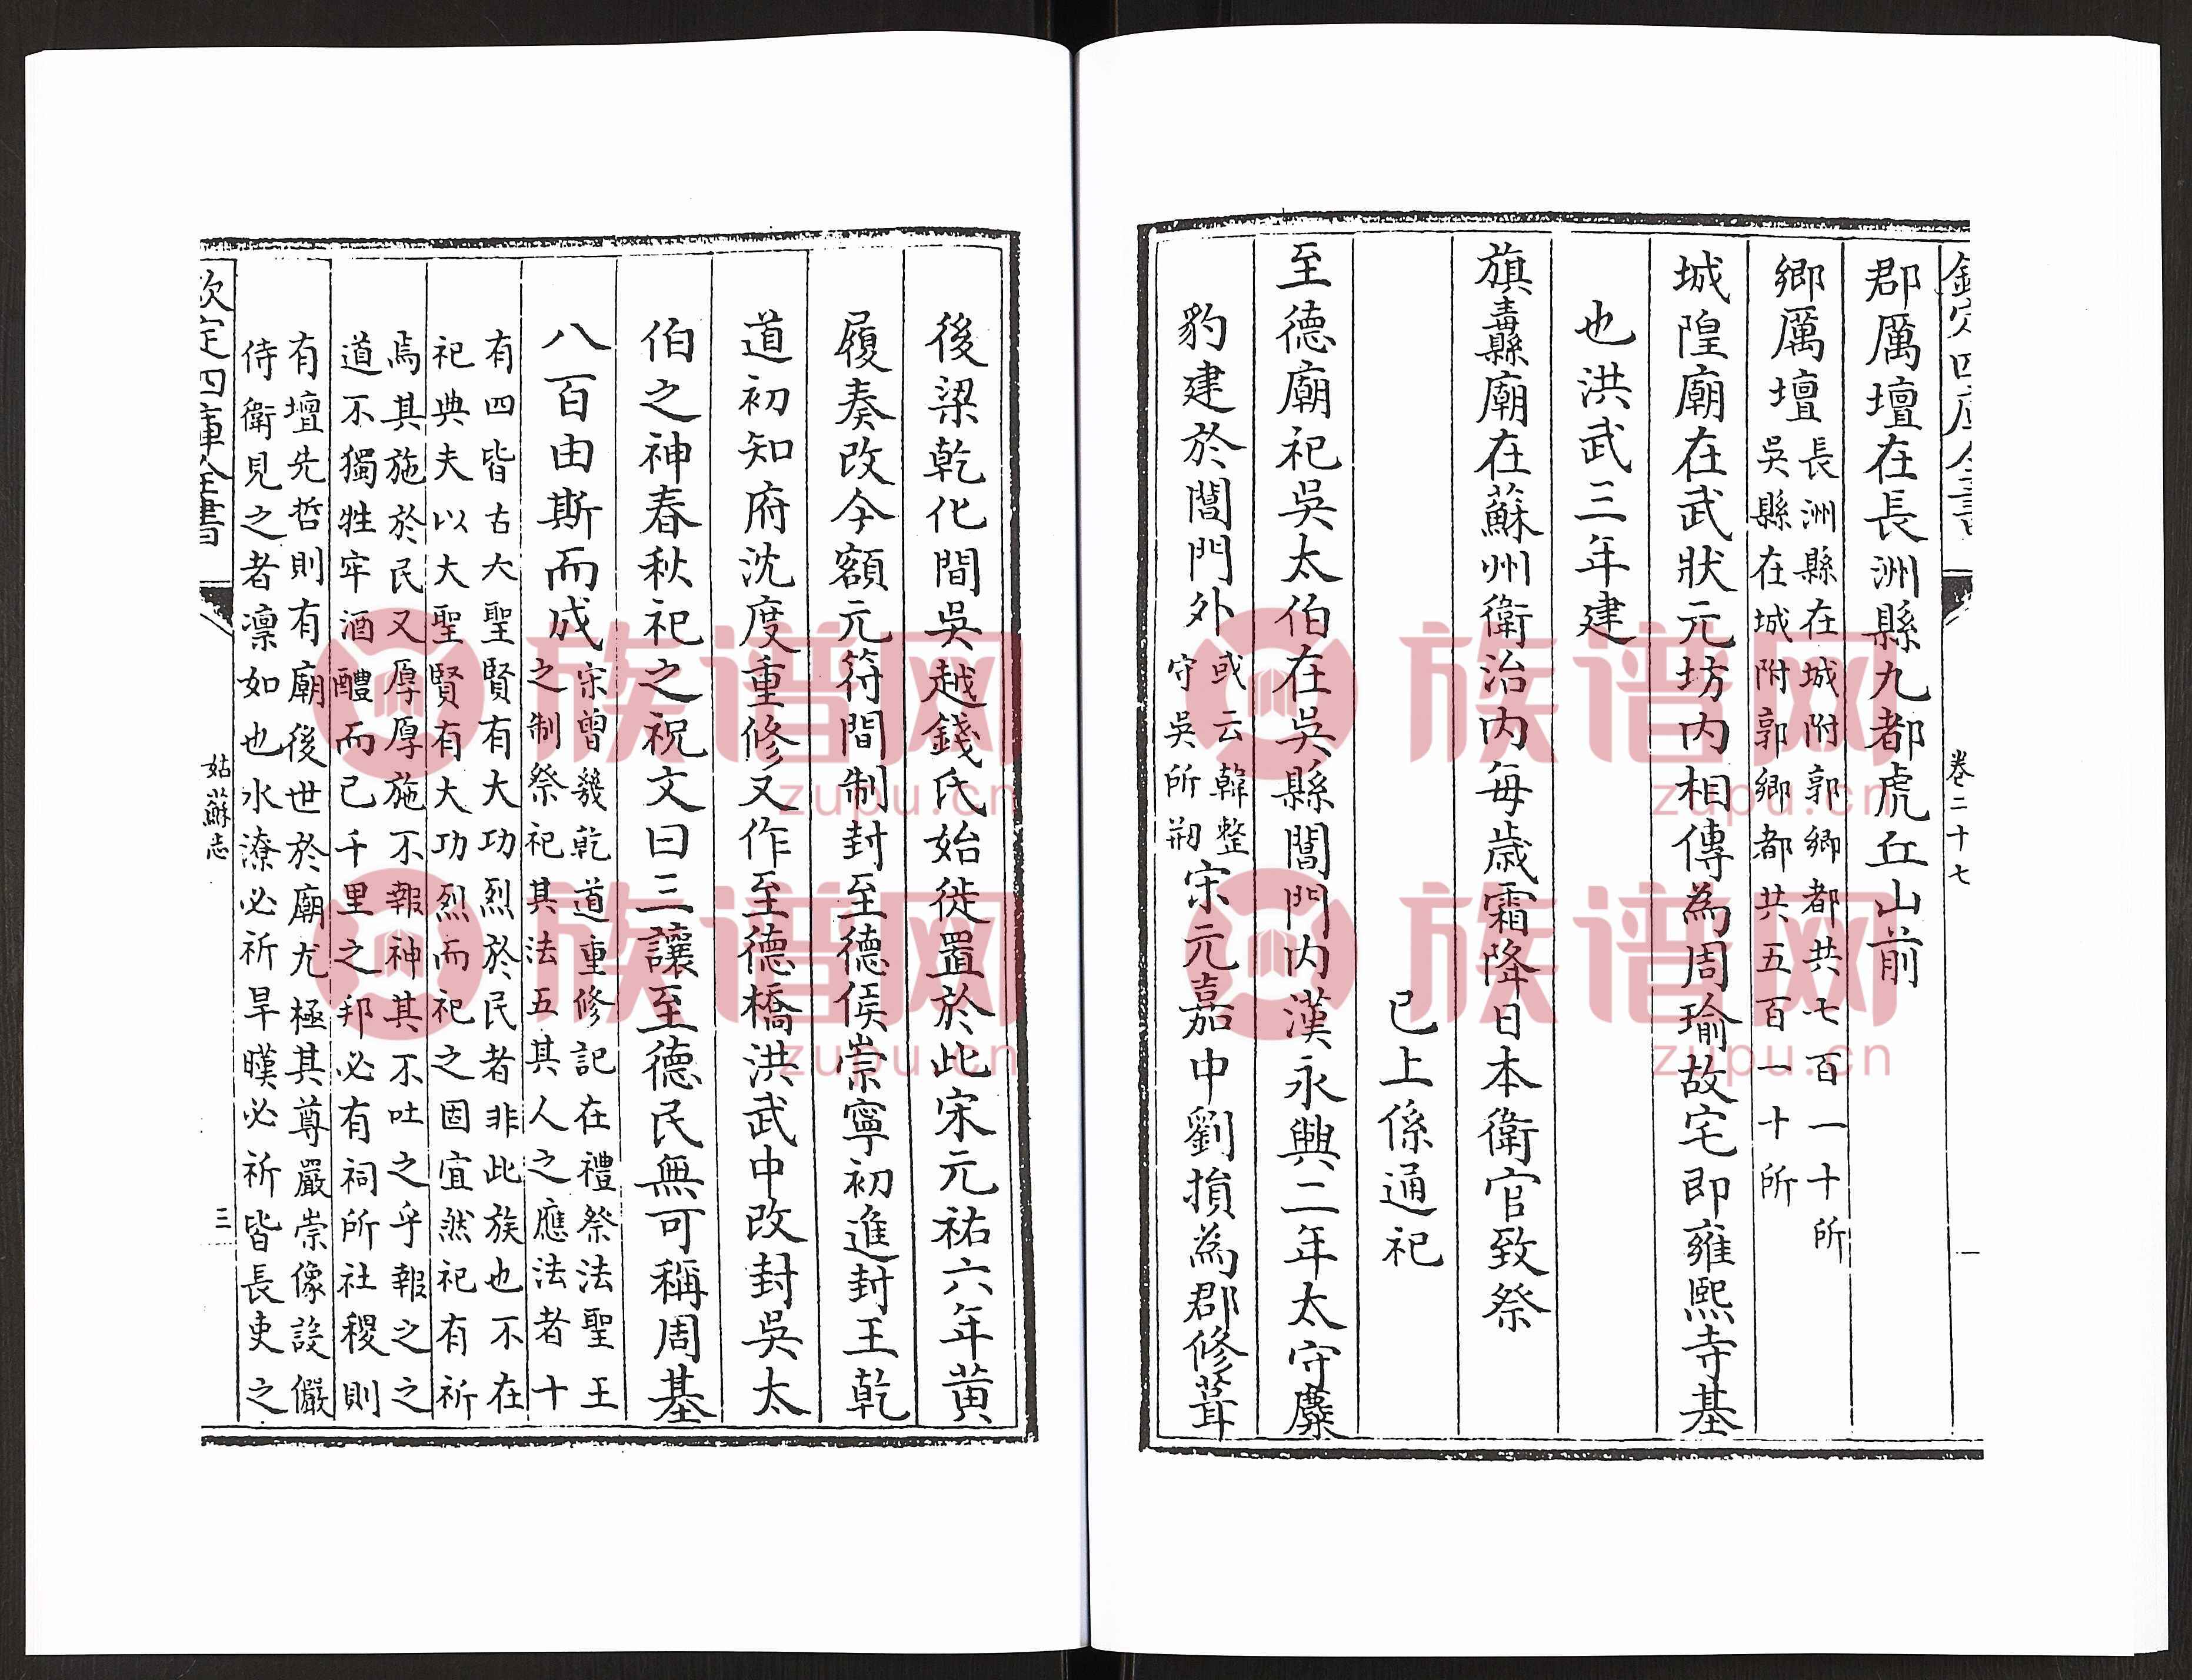 欽定四庫全書
卷二十七
郡厲壇在長洲縣九都虎丘山前
鄉厲壇長洲縣在城附郭鄉都共七百一十所
吳縣在城附郭鄉都共五百一十所
城隍廟在武狀元坊内相傳為周瑜故宅即雍熙寺基
也洪武三年建
旗纛縣廟在蘇州衛治内每歲霜降日本衛官致祭
已上係通祀
至德廟祀吳太伯在吳縣閶門内漢永興二年太守麋
豹建於閶門外或云韓整
守吳所剏宋元嘉中劉損為郡修葺
後梁乾化間吳越錢氏始徙置於此宋元祐六年黄
履奏改今額元符間制封至德侯崇寧初進封王乾
道初知府沈度重修又作至德橋洪武中改封吳太
伯之神春秋祀之祝文曰三讓至德民無可稱周基
八百由斯而成宋曾幾乾道重修記在禮祭法聖王
之制祭祀其法五其人之應法者十
有四皆古大聖賢有大功烈於民者非此族也不在
祀典夫以大聖賢有大功烈而祀之固宜然祀有祈
焉其施於民又厚厚施不報神其不吐之乎報之之
道不獨牲牢酒醴而已千里之邦必有祠所社稷則
有壇先哲則有廟後世於廟尤極其尊嚴崇像設儼
侍衛見之者凛如也水潦必祈旱暵必祈皆長吏之
欽定四庫全書
姑蘇志
三
族谱网
zupu.cn
族谱网
zupu.cn
族谱网
zupu.cn
族谱网
zupu.cn